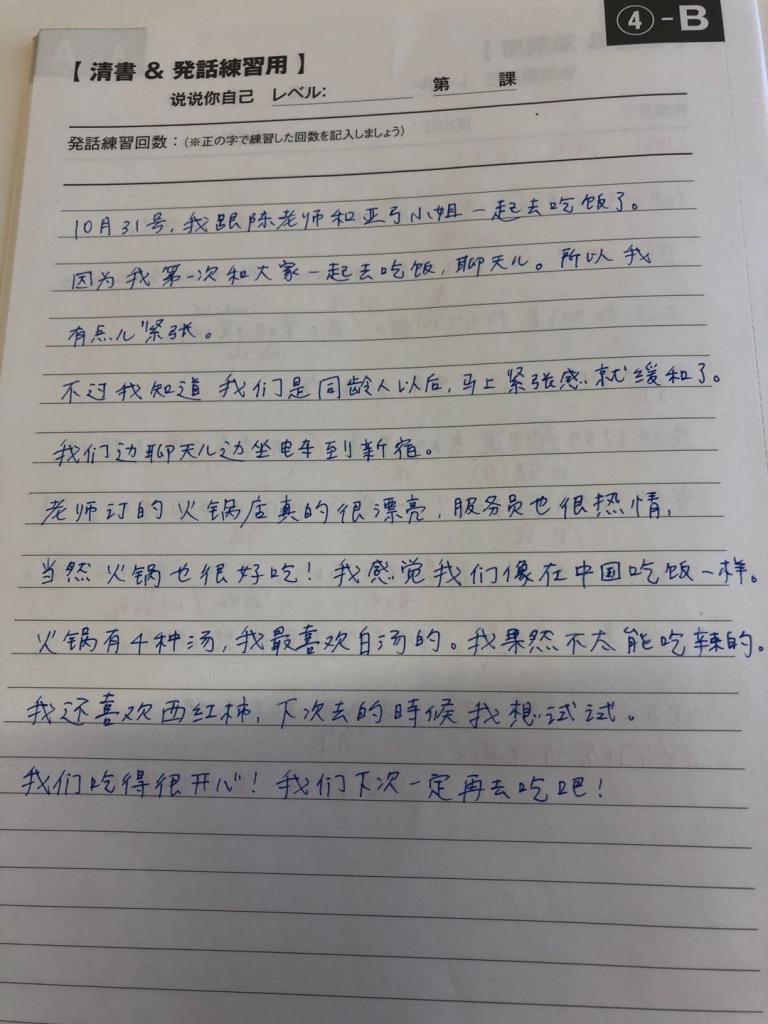 ④-B
【 清書 & 発話練習用 】
说说你自己 レベル: 第 課
発話練習回数：(※正の字で練習した回数を記入しましょう)
10月31号，我跟陈老师和亚弓小姐一起去吃饭了。
因为我第一次和大家一起去吃饭，聊天儿。所以我
有点儿紧张。
不过我知道我们是同龄人以后，马上紧张感就缓和了。
我们边聊天儿边坐电车到新宿。
老师订的火锅店真的很漂亮，服务员也很热情，
当然火锅也很好吃！我感觉我们像在中国吃饭一样。
火锅有4种汤，我最喜欢白汤的。我果然不太能吃辣的。
我还喜欢西红柿，下次去的時候我想试试。
我们吃得很开心！我们下次一定再去吃吧！